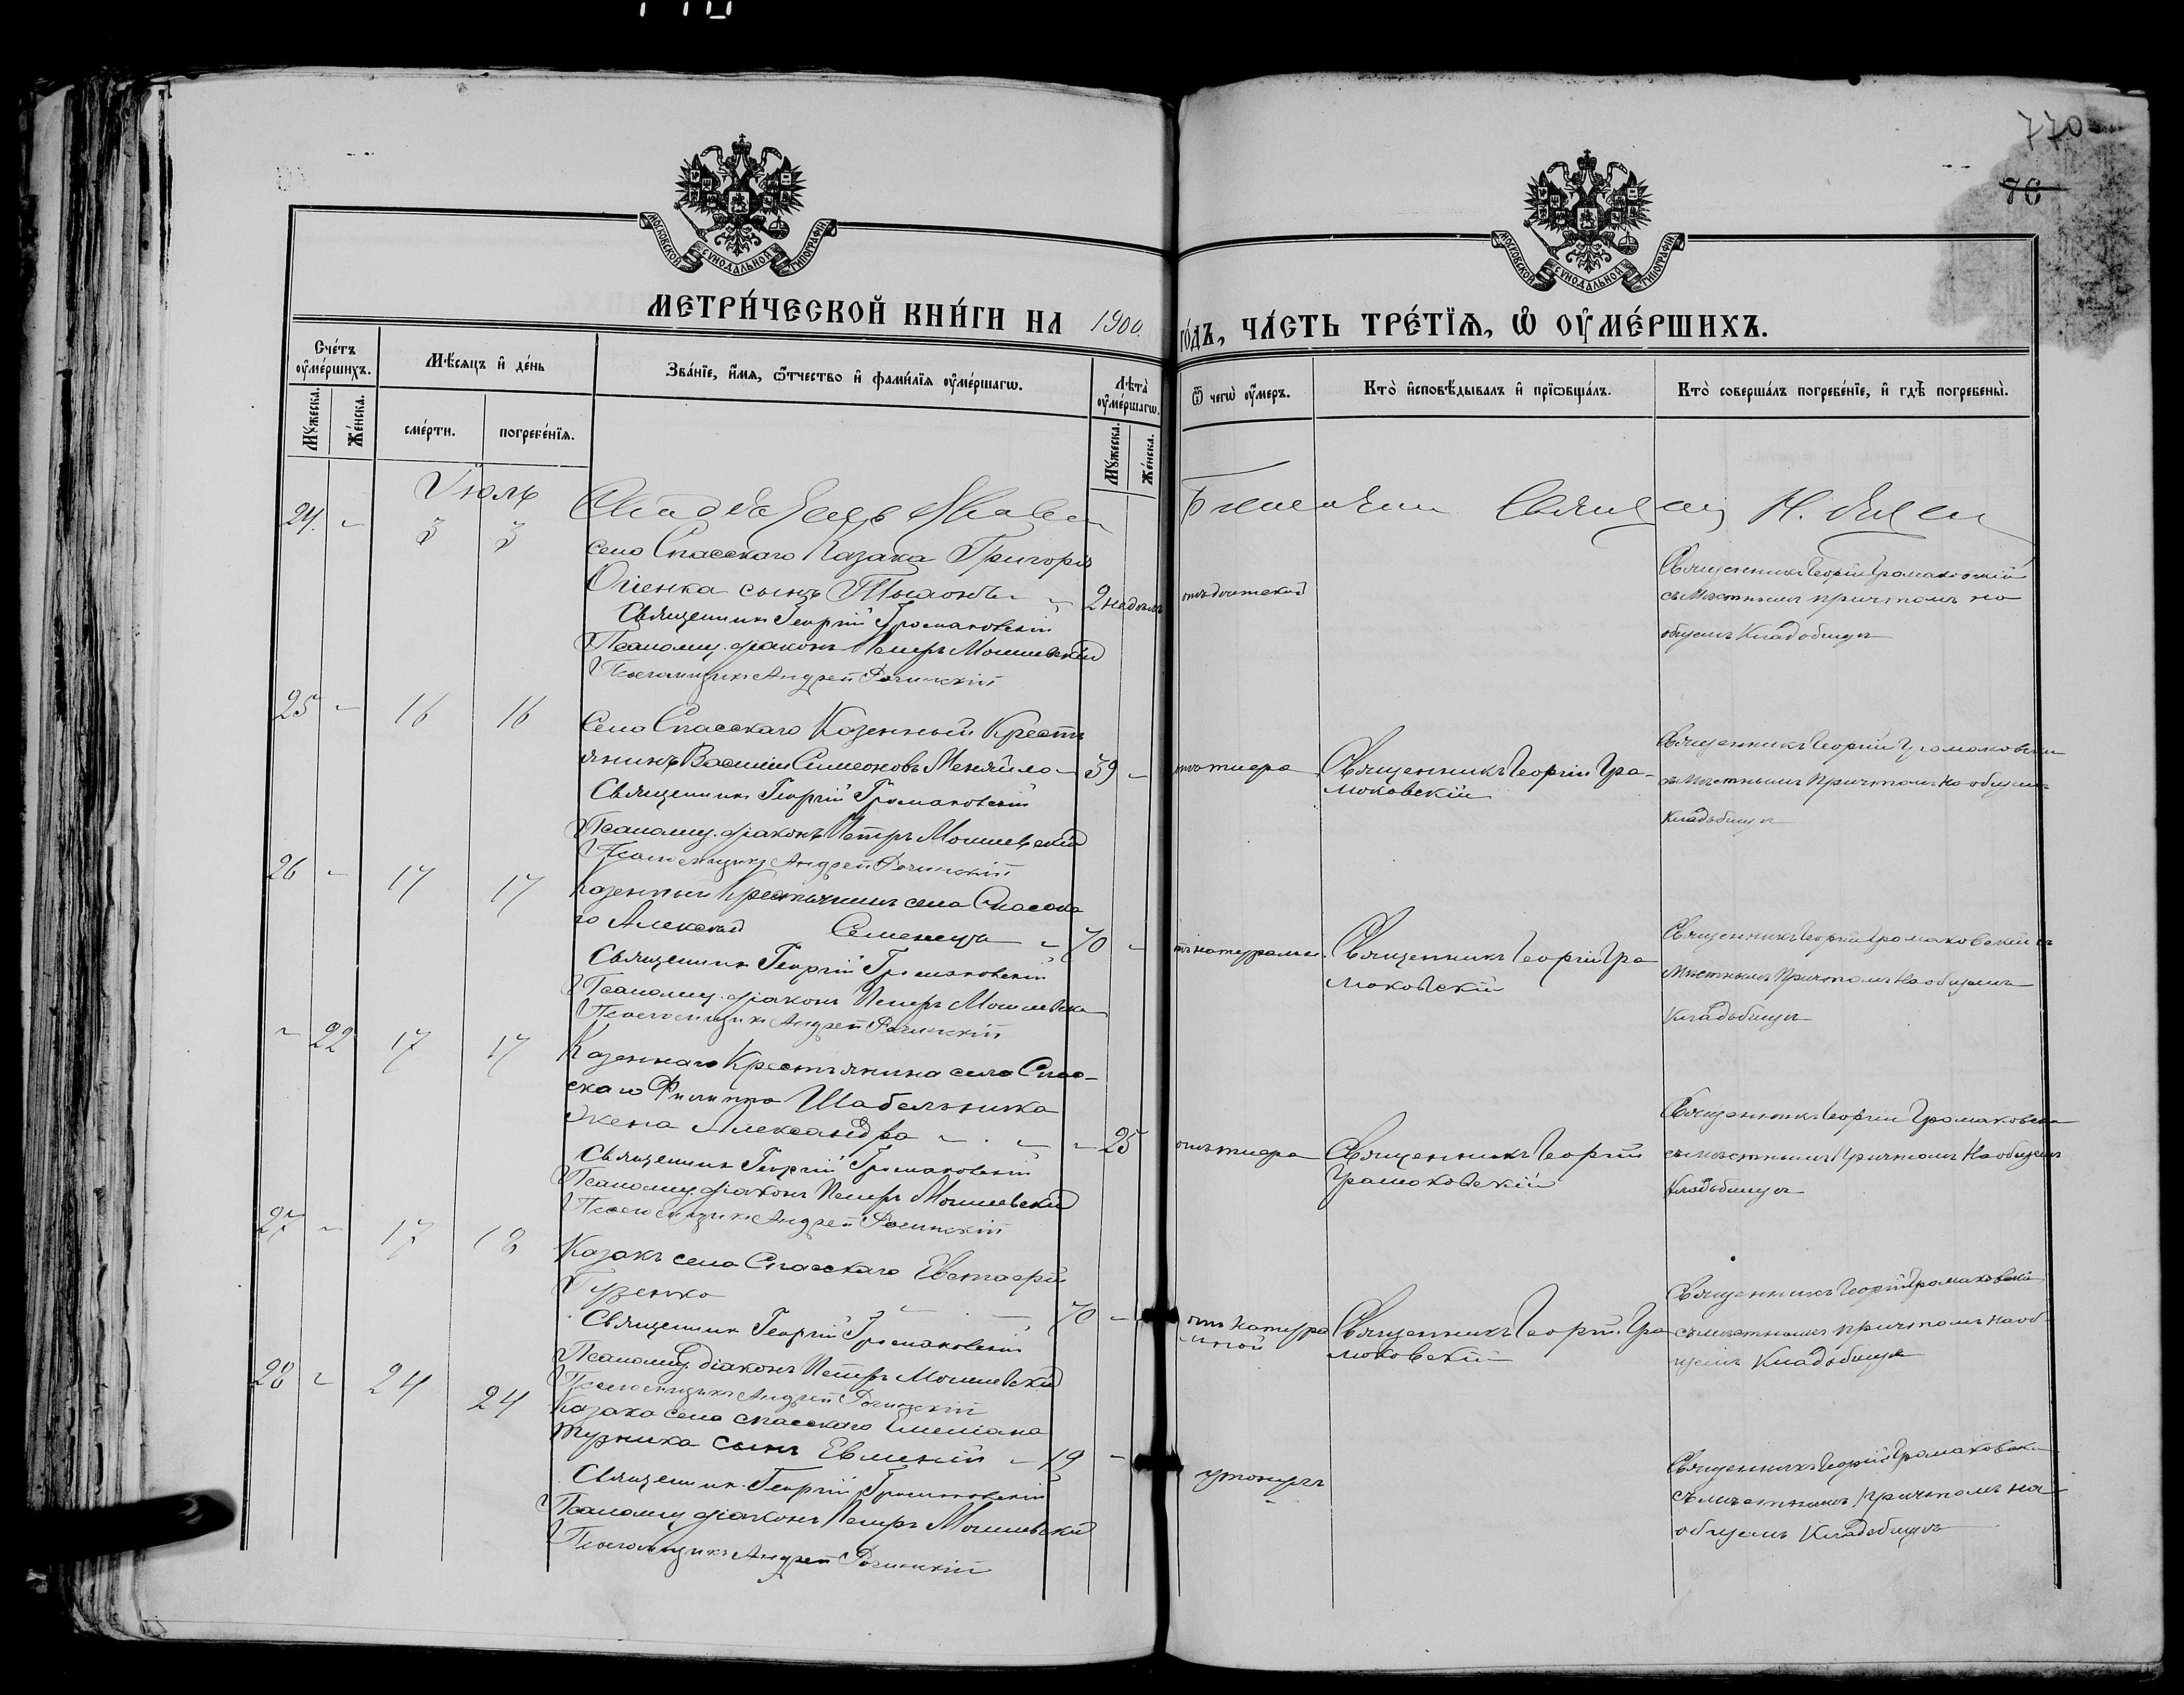 770
76
МОСКОВСКОЙ СѴНОДАЛЬНОЙ ТИПОГРАФІИ
МОСКОВСКОЙ СѴНОДАЛЬНОЙ ТИПОГРАФІИ
МЕТРИ́ЧЕСКОЙ КНИ́ГИ НА 1900 ГО́ДЪ, ЧА́СТЬ ТРЕ́ТЇѦ, Ѡ҆ ОУ҆МЕ́РШИХЪ.
Сче́тъ оу҆ме́ршихъ.
Мꙋ́жеска.
Же́нска.
Мѣ́сѧцъ и҆ де́нь
сме́рти.
погребе́нїѧ.
Зва́нїе, и҆́мѧ, ѻ҆́тчество и҆ фами́лїѧ оу҆ме́ршагѡ.
Лѣ́та оу҆ме́ршагѡ.
Мꙋ́жеска.
Же́нска.
Ѿ чегѡ̀ оу҆́меръ.
Кто̀ и҆сповѣ́дывалъ и҆ прїѡбща́лъ.
Кто̀ соверша́лъ погребе́нїе, и҆ гдѣ̀ погребены̀.
Іюль
24. - 3 3
село Спасскаго Казака Григорія
Огіенка сынъ - 2 недѣль
Священникъ Георгій Громаковскій
Псаломщ. діаконъ Петръ
Псаломщикъ Андрей
Священникъ Георгій Громаковскій
съ мѣстнымъ причтомъ на
общемъ кладбищѣ
25 - 16 16
Села Спасскаго Казенный Кресть
янинъ Василій Симеоновъ Меняйло - 59 -
Священникъ Георгій Громаковскій
Псаломщ. діаконъ Петръ
Псаломщикъ Андрей
отъ тифа
Священникъ Георгій Гро-
маковскій
Священникъ Георгій Громаковскій
съ мѣстнымъ причтомъ на общемъ
кладбищѣ
26 - 17 17
Казенный Крестьянинъ села Спасска
го Алексѣй Семенецъ - 70 -
Священникъ Георгій Громаковскій
Псаломщ. діаконъ Петръ
Псаломщикъ Андрей
Священникъ Георгій Гро
маковскій
Священникъ Георгій Громаковскій съ
мѣстнымъ причтомъ на общемъ
кладбищѣ
- 22 17 17
Казеннаго Крестьянина села Спас-
скаго Филиппа Шабельника
жена Александра - 25
Священникъ Георгій Громаковскій
Псаломщ. діаконъ Петръ
Псаломщикъ Андрей
отъ тифа
Священникъ Георгій
Громаковскій
Священникъ Георгій Громаковскій
съ мѣстнымъ причтомъ на общемъ
кладбищѣ
27 - 17 18
Казакъ села Спасскаго Евстафій
Гузенко 70 -
Священникъ Георгій Громаковскій
Псаломщ. діаконъ Петръ
Псаломщикъ Андрей
отъ натура
льной
Священникъ Георгій Гро
маковскій
Священникъ Георгій Громаковскій
съ мѣстнымъ причтомъ на об-
щемъ кладбищѣ
28 - 24 24
Казака села Спасскаго Емеліана
сынъ Евменій - 19 -
Священникъ Георгій Громаковскій
Псаломщ. діаконъ Петръ
Псаломщикъ Андрей
утонулъ
Священникъ Георгій Громаковскій
съ мѣстнымъ причтомъ на
общемъ кладбищѣ